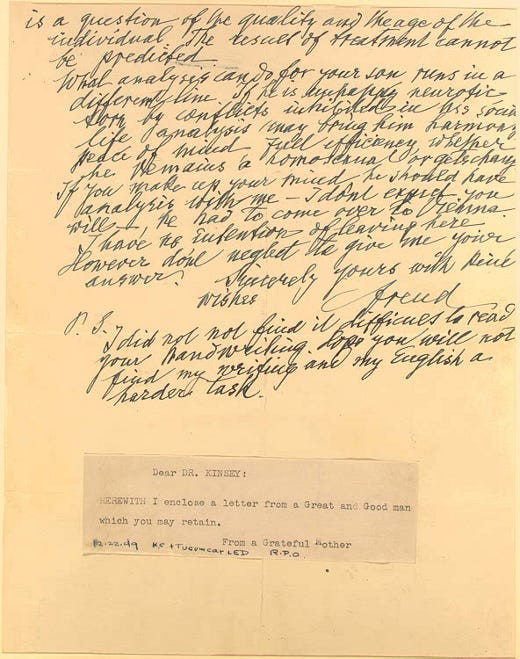 is a question of the quality and the age of the
individual. The result of treatment cannot
be predicted.
What analysis can do for your son runs in a
different line. If he is unhappy, neurotic,
torn by conflicts, inhibited in his social
life analysis may bring him harmony
peace of mind full efficiency whether
he remains a homosexual or gets chang
If you make up your mind he should have
analysis with me – I dont expect you
will –, he had to come over to Vienna.
I have no intention of leaving here.
However dont neglect to give me your
answer.
Sincerely yours with kind
wishes
Freud
P. S.
I did not not find it difficult to read
your handwriting. Hope you will not
find my writing and my English a
harder task.
Dear DR. KINSEY:
HEREWITH I enclose a letter from a Great and Good man
which you may retain.
From a Grateful Mother
12.22.49 KC + Tucumcari ED R.P.O.